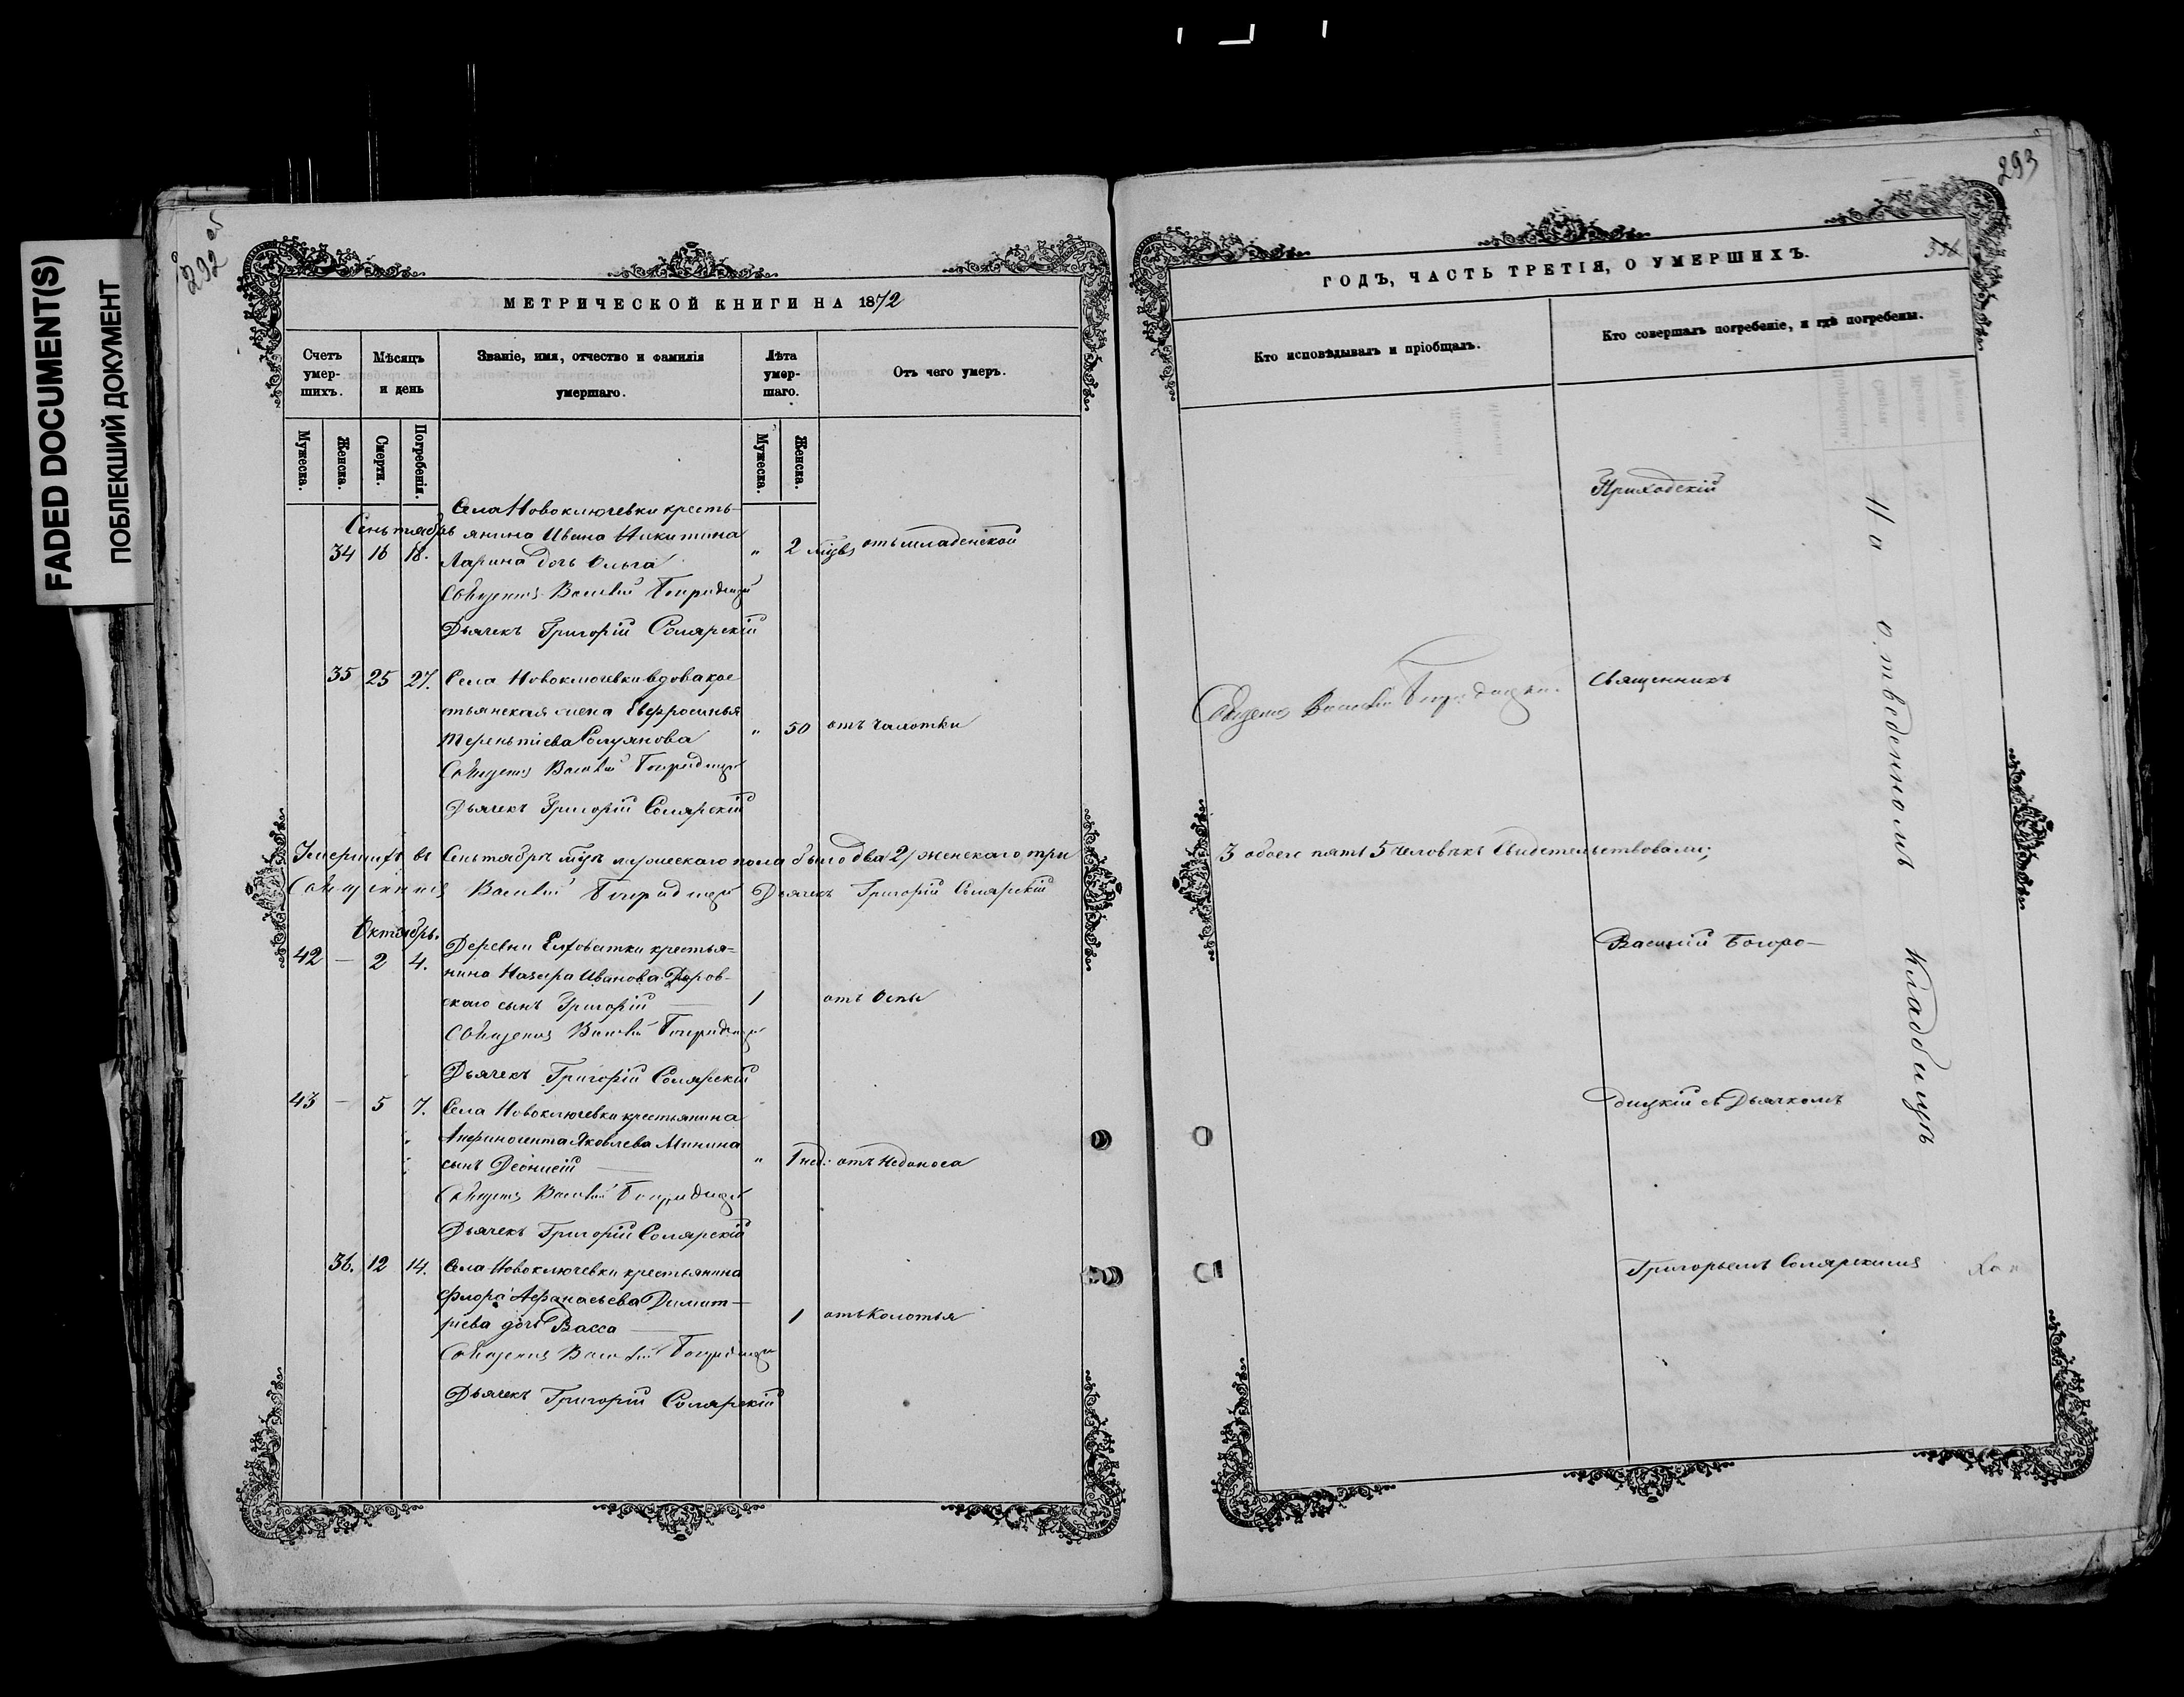 FADED DOCUMENT(S)
ПОБЛЕКШИЙ ДОКУМЕНТ
292 об
МЕТРИЧЕСКОЙ КНИГИ НА 1872
Счетъ умер-шихъ.
Мѣсяцъ и день
Званіе, имя, отчество и фамилія умершаго.
Лѣта умер-шаго.
Отъ чего умеръ.
Мужеска.
Женска.
Смерти.
Погребенія.
Мужеска.
Женска.
Села Новоключевки кресть-
Сентябрь янина Ивана Никитина
34 16 18. Ларина дочь Ольга " 2 мцъ отъ младенской
Священ Василій Богородицкій
Дьячекъ Григорій Солярскій
35 25 27. Села Новоключевки вдова крес
тьянская жена Евфросинья
Терентіева " 50 отъ чахотки
Священ Василій Богородицкій
Дьячекъ Григорій Солярскій
Умершихъ въ Сентябрѣ мцѣ мужескаго пола было два 2, женскаго три
Священникъ Василій Богородицкій Дьячекъ Григорій Солярскій
Октябрь.
42 — 2 4. Деревни Елховатки крестья-
нина Назара Иванова
скаго сынъ Григорій — 1 отъ Оспы
Священ Василій Богородицкій
Дьячекъ Григорій Солярскій
43 — 5 7. Села Новоключевки крестьянина
Анфиногента Яковлева Минина
сынъ Діонисій — " 1 нед: отъ недоноса
Священ Василій Богородицкій
Дьячекъ Григорій Солярскій
36. 12 14. Села Новоключевки крестьянина
Флора Афанасьева Димит-
ріева дочь Васса — 1 отъ колотья
Священ Василій Богородицкій
Дьячекъ Григорій Солярскій
293
ГОДЪ, ЧАСТЬ ТРЕТІЯ, О УМЕРШИХЪ.
Кто исповѣдывалъ и пріобщалъ.
Кто совершалъ погребеніе, и гдѣ погребены.
Приходскій
Священ Василій Богородицкій.
Священникъ
3 обоего пять 5 человѣкъ Свидетельствовали;
Василій Богоро-
дицкій съ Дьячкомъ
Григорьемъ Солярскимъ
На отведенномъ кладбищѣ